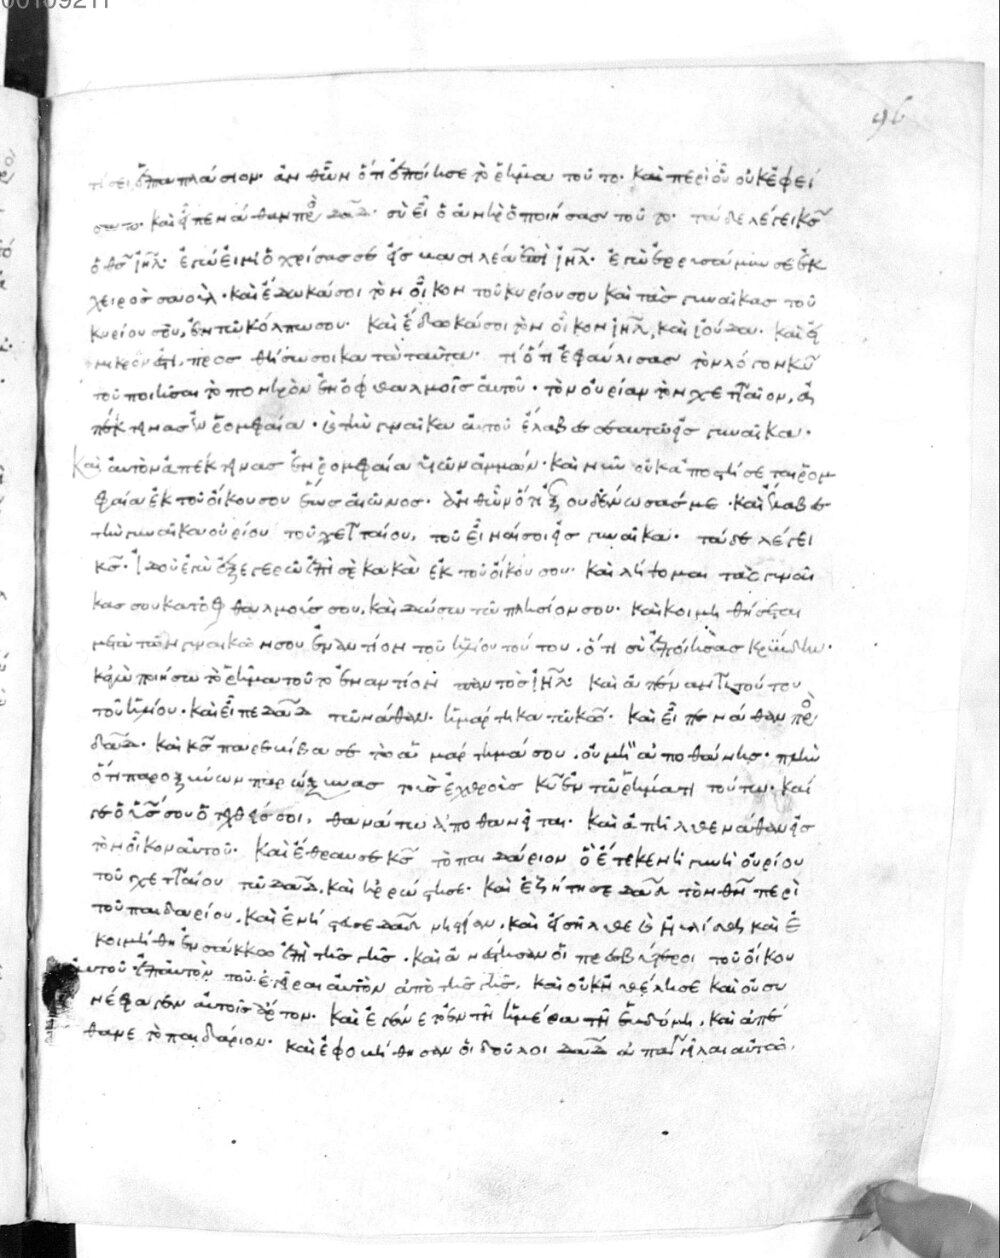 00109211
96
τίσει ἑπταπλάσιον· ἀνθ ὧν ὅτι ἐποίησε τὸ ῥῆμα τοῦτο· καὶ περὶ οὗ οὐκ ἐφεί
σατο· καὶ εἶπε νάθαν πρὸς δαδ· σὺ εἶ ὁ ἀνὴρ ὁ ποιήσας τοῦτο· τάδε λέγει κς
ὁ θς ιηλ· ἐγώ εἰμι ὁ χρίσας σε εἰς βασιλέα ἐπὶ ιηλ· ἐγὼ ἐρρυσάμην σε ἐκ
χειρὸς σαούλ· καὶ ἔδωκά σοι τὸν οἶκον τοῦ κυρίου σου καὶ τὰς γυναῖκας τοῦ
κυρίου σου, ἐν τῷ κόλπω σου· καὶ ἔδωκά σοι τὸν οἶκον ιηλ, καὶ ἰούδα· καὶ εἰ
μικρόν ἐστι, προσθήσω σοι κατὰ ταῦτα· τί ὅτι ἐφαύλισας τὸν λόγον κυ
τοῦ ποιῆσαι τὸ πονηρὸν ἐν ὀφθαλμοῖς αὐτοῦ· τὸν οὐρίαν τὸν χετταῖον, ἀ
πέκτεινας ἐν ῥομφαία· καὶ τὴν γυναῖκα αὐτοῦ ἔλαβες σεαυτῷ εἰς γυναῖκα·
Καὶ αὐτὸν ἀπέκτεινας ἐν ῥομφαία υἱῶν ἀμμών· καὶ νῦν οὐκ ἀποστήσεται ῥομ
φαία ἐκ τοῦ οἴκου σου ἕως αἰῶνος· ἀνθ ὧν ὅτι ἐξουδένωσάς με· καὶ ἔλαβες
τὴν γυναῖκα οὐρίου τοῦ χετταίου, τοῦ εἶναί σοι εἰς γυναῖκα· τάδε λέγει
κς· ἰδοὺ ἐγὼ ἐξεγερῶ ἐπὶ σὲ κακὰ ἐκ τοῦ οἴκου σου· καὶ λήψομαι τὰς γυναῖ
κας σου κατ ὀφθαλμούς σου, καὶ δώσω τῷ πλησίον σου· καὶ κοιμηθήσεται
μετὰ τῶν γυναικῶν σου ἐναντίον τοῦ ἡλίου τούτου· ὅτι σὺ ἐποίησας κρύβδην·
κἀγὼ ποιήσω τὸ ῥῆμα τοῦτο ἐναντίον παντὸς ιηλ· καὶ ἀπέναντι τούτου
τοῦ ἡλίου· καὶ εἶπε δαδ τῷ νάθαν· ἡμάρτηκα τῷ κω· καὶ εἶπε νάθαν πρὸς
δαδ· καὶ κς παρεβίβασε τὸ ἁμάρτημά σου, οὐ μὴ ἀποθάνης· πλὴν
ὅτι παροξύνων παρώξυνας τοὺς ἐχθροὺς κυ ἐν τῷ ῥήματι τούτω· καί
γε ὁ υἱός σου ὁ τεχθείς σοι, θανάτω ἀποθανεῖται· καὶ ἀπῆλθε νάθαν εἰς
τὸν οἶκον αὐτοῦ· καὶ ἔθραυσε κς τὸ παιδάριον ὃ ἔτεκεν ἡ γυνὴ οὐρίου
τοῦ χετταίου τῷ δαδ, καὶ ἠρρώστησε· καὶ ἐζήτησε δαδ τὸν θν περὶ
τοῦ παιδαρίου, καὶ ἐνήστευσε δαδ νηστείαν, καὶ εἰσῆλθε καὶ ηὐλίσθη καὶ ἐ
κοιμήθη ἐν σάκκω ἐπὶ τῆς γῆς· καὶ ἀνέστησαν οἱ πρεσβύτεροι τοῦ οἴκου
αὐτοῦ ἐπ αὐτὸν τοῦ ἐγεῖραι αὐτὸν ἀπὸ τῆς γῆς, καὶ οὐκ ἠθέλησε καὶ οὐ συ
νέφαγεν αὐτοῖς ἄρτον· καὶ ἐγένετο ἐν τῇ ἡμέρα τῇ ἑβδόμη, καὶ ἀπέ
θανε τὸ παιδάριον· καὶ ἐφοβήθησαν οἱ δοῦλοι δαδ ἀπαγγεῖλαι αὐτῷ,